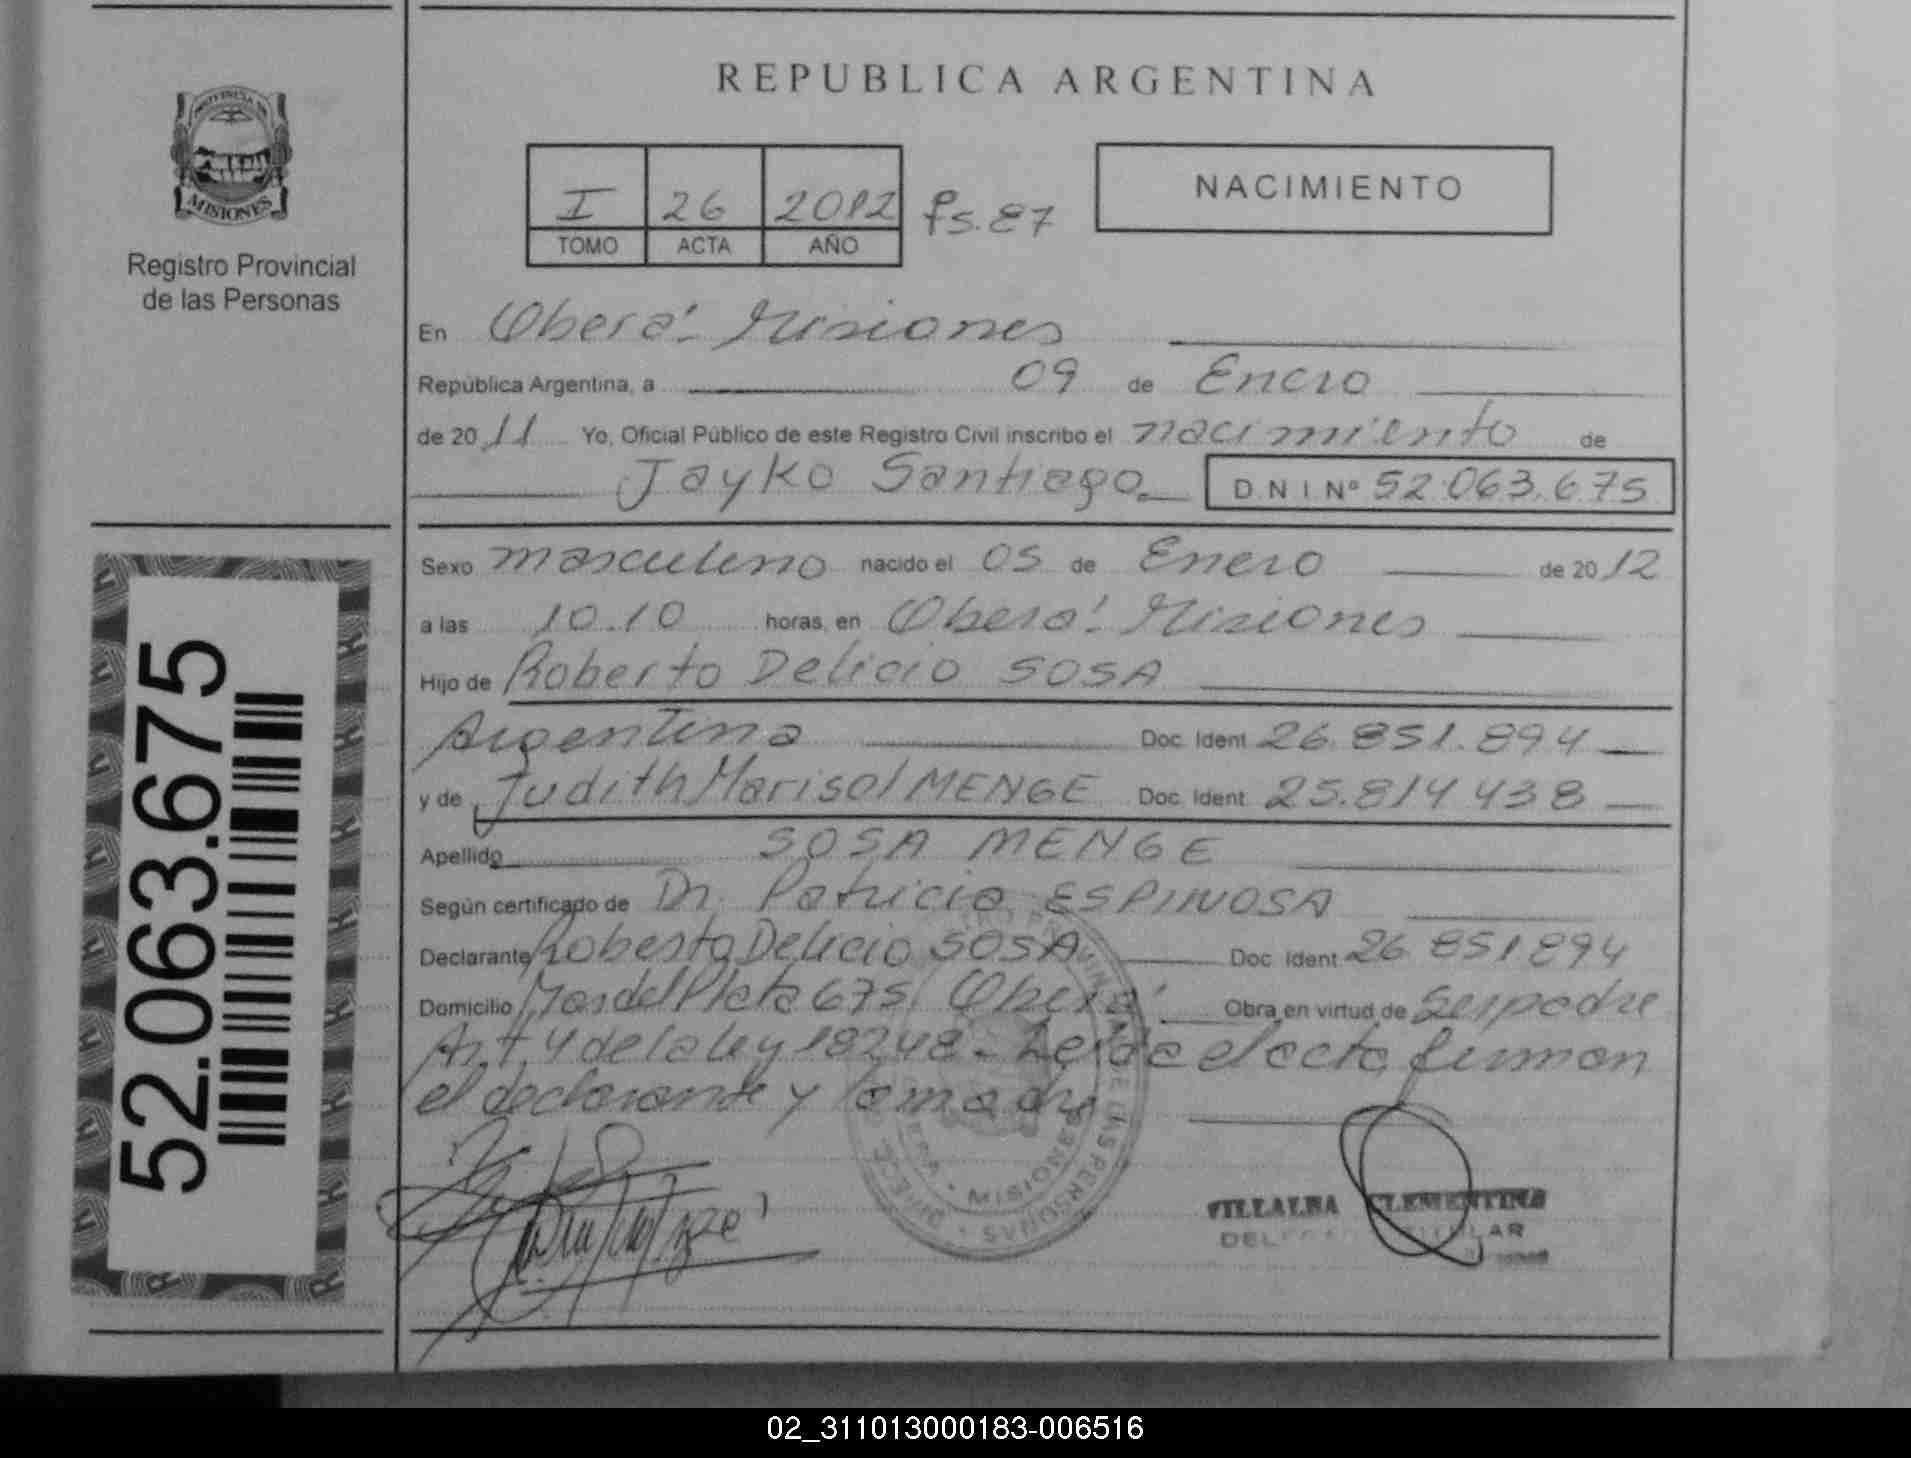 REPUBLICA ARGENTINA
PROVINCIA DE
MISIONES
Registro Provincial
de las Personas
I 26 2012 fs. 87
TOMO ACTA AÑO
NACIMIENTO
En Oberá - Misiones
República Argentina, a 09 de Enero
de 2011 Yo, Oficial Público de este Registro Civil inscribo el nacimiento de
Jayko Santiago D N I Nº 52.063.675
Sexo masculino nacido el 05 de Enero de 2012
a las 10.10 horas, en Oberá - Misiones
Hijo de Roberto Delicio SOSA
Argentina Doc. Ident. 26.851.894
y de Judith Marisol MENGE Doc. Ident. 25.814.438
Apellido SOSA MENGE
Según certificado de Dr. Patricia ESPINOSA
Declarante Roberto Delicio SOSA Doc. Ident. 26.851.894
Domicilio Mar del Plata 675 Oberá Obra en virtud de Ser padre
Art. 4 de la ley 18248 - Leída el acta firman
el declarante y la madre
52.063.675
DE LAS PERSONAS
MISIONES
VILLALBA CLEMENTINA
02_311013000183-006516